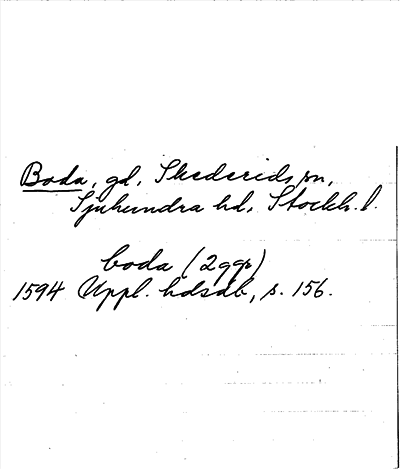 Boda, gd, Skederids sn,
Sjuhundra hd, Stockh. l.
boda (2 ggr)
1594 Uppl. hdsdb, s. 156.